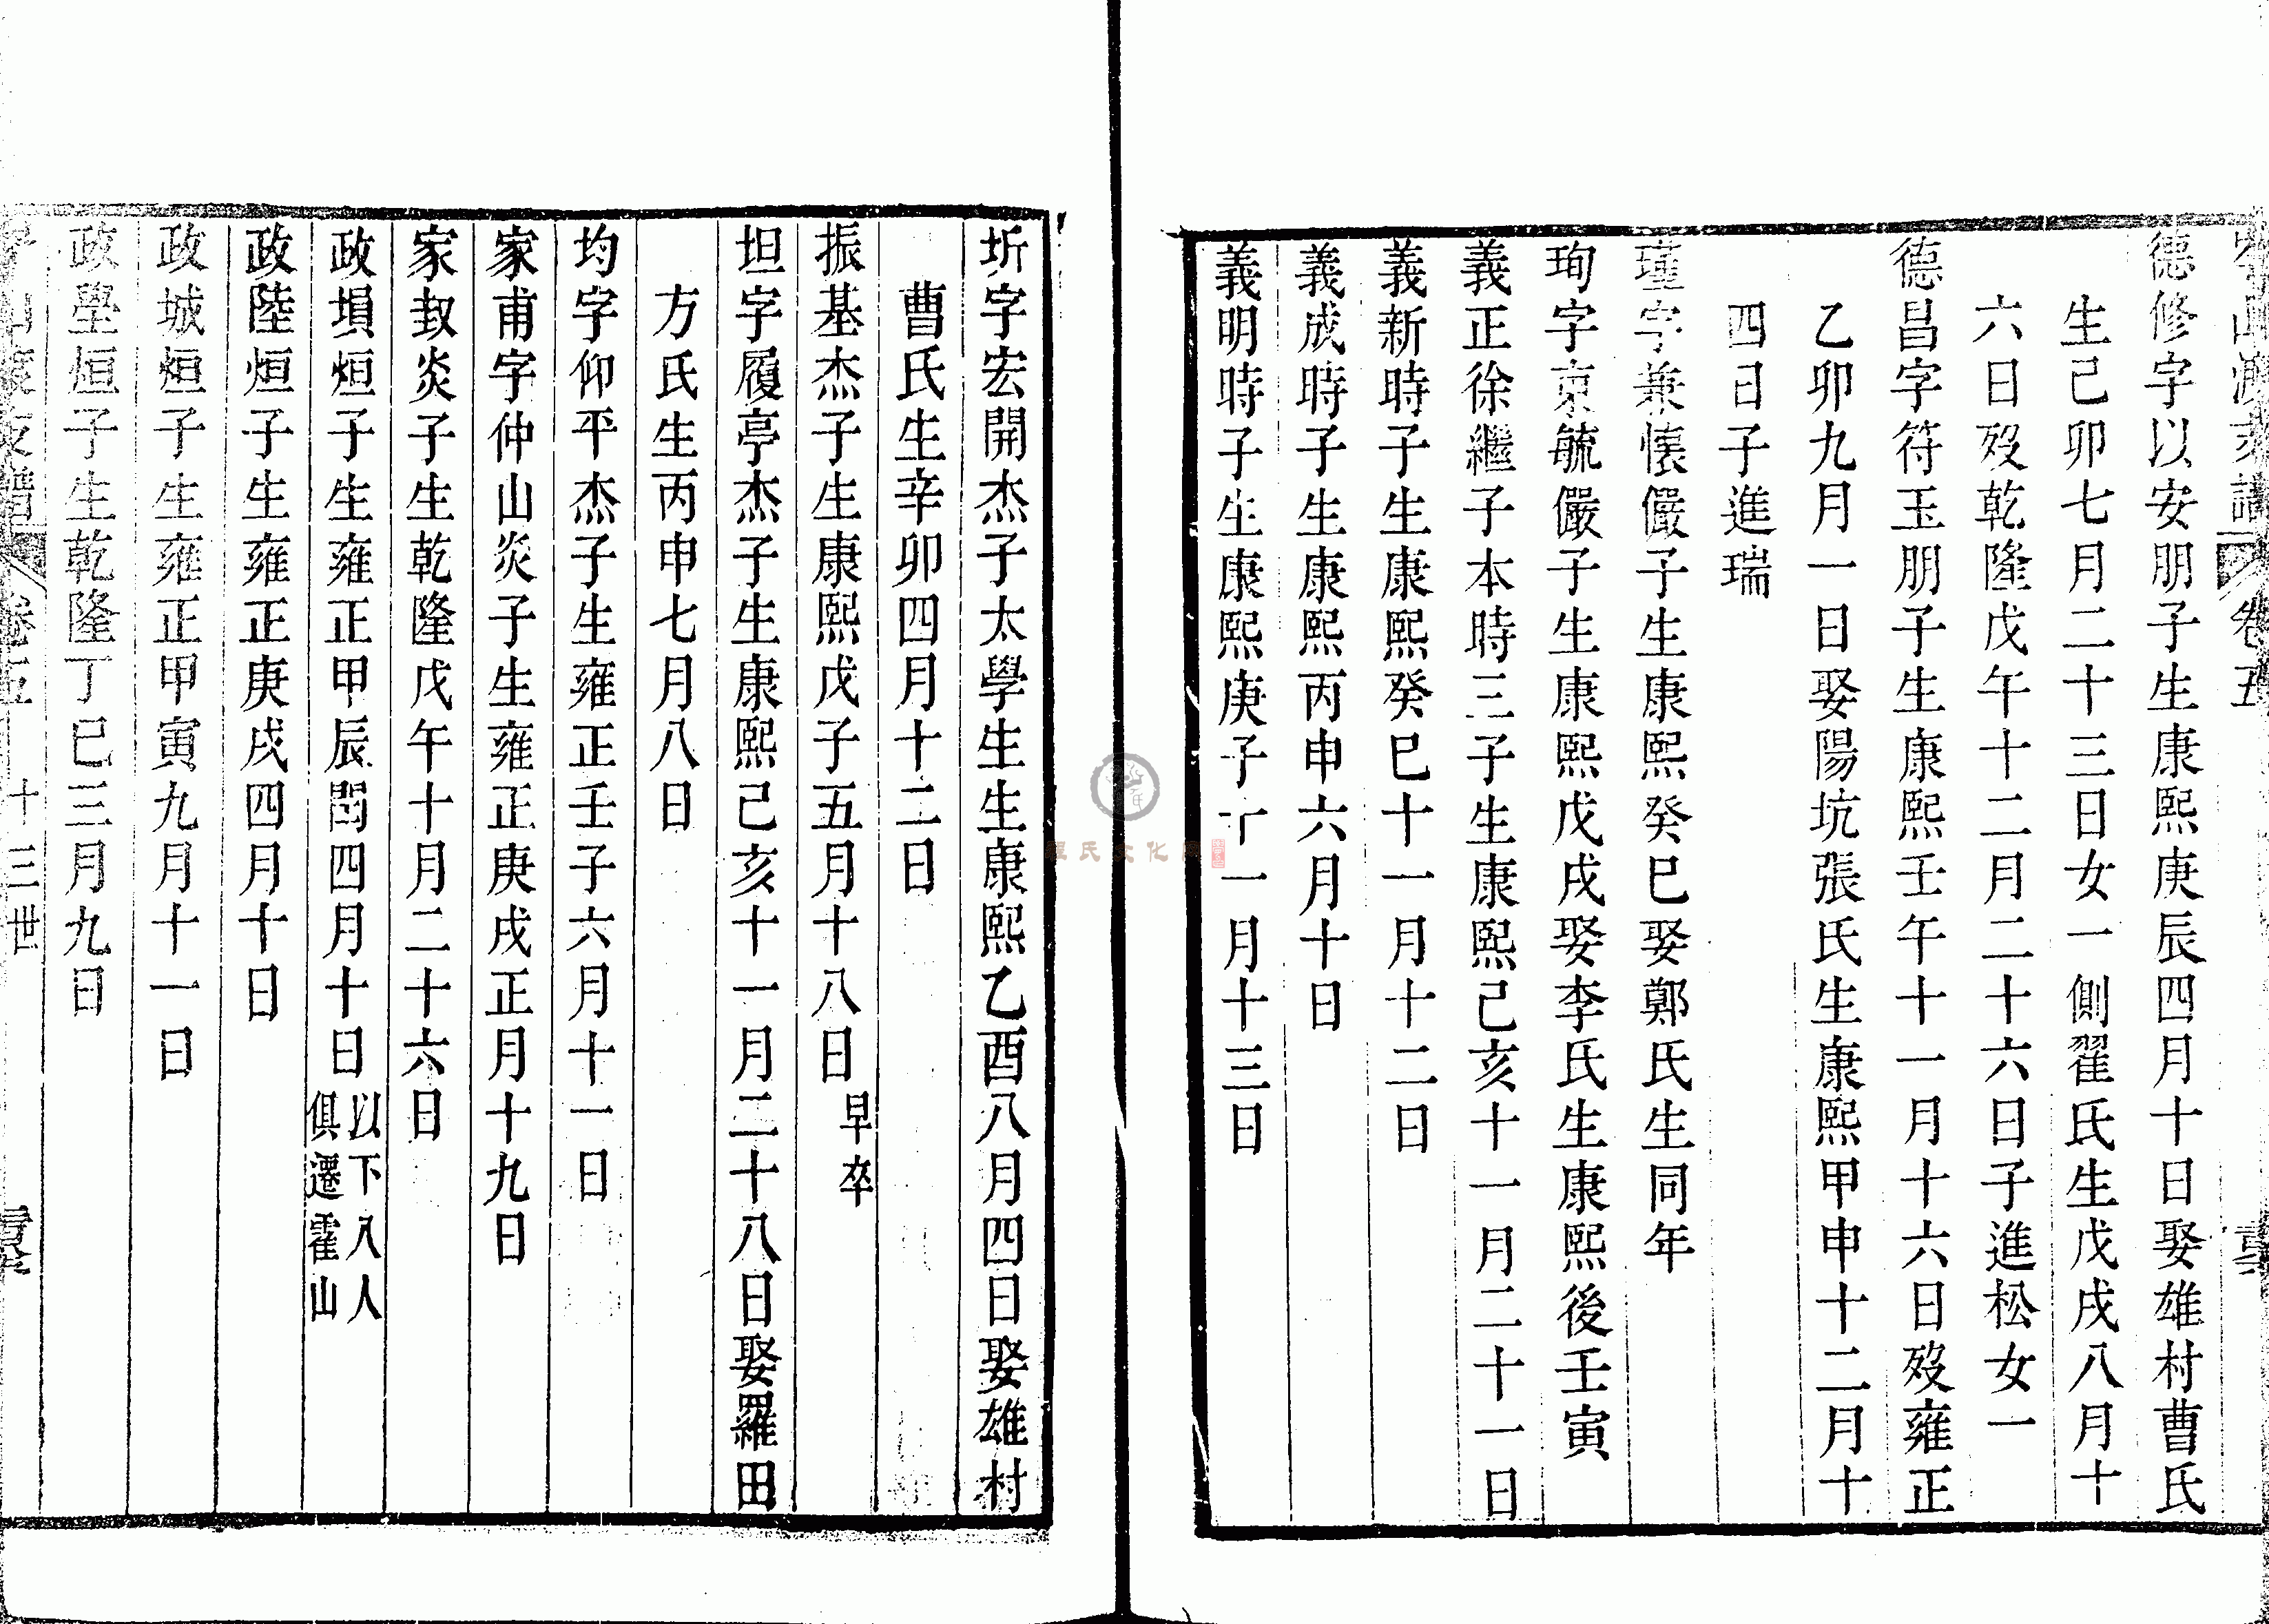 德修字以安朋子生康熙庚辰四月十日娶雄村曹氏
生己卯七月二十三日女一側翟氏生戊戌八月十
六日歿乾隆戊午十二月二十六日子進松女一
德昌字符玉朋子生康熙壬午十一月十六日歿雍正
乙卯九月一日娶陽坑張氏生康熙甲申十二月十
四日子進瑞
瑾字兼懷儼子生康熙癸巳娶鄭氏生同年
珣字京毓儼子生康熙戊戌娶李氏生康熙後壬寅
義正徐繼子本時三子生康熙己亥十一月二十一日
義新時子生康熙癸巳十一月十二日
義成時子生康熙丙申六月十日
義明時子生康熙庚子十一月十三日
卷五
圻字宏開杰子太學生生康熙乙酉八月四日娶雄村
曹氏生辛卯四月十二日
振基杰子生康熙戊子五月十八日早卒
坦字履亭杰子生康熙己亥十一月二十八日娶羅田
方氏生丙申七月八日
均字仰平杰子生雍正壬子六月十一日
家甫字仲山炎子生雍正庚戌正月十九日
家敊炎子生乾隆戊午十月二十六日
政塤烜子生雍正甲辰閏四月十日以下八人俱遷霍山
政陸烜子生雍正庚戌四月十日
政城烜子生雍正甲寅九月十一日
政壆烜子生乾隆丁巳三月九日
卷五 十三世